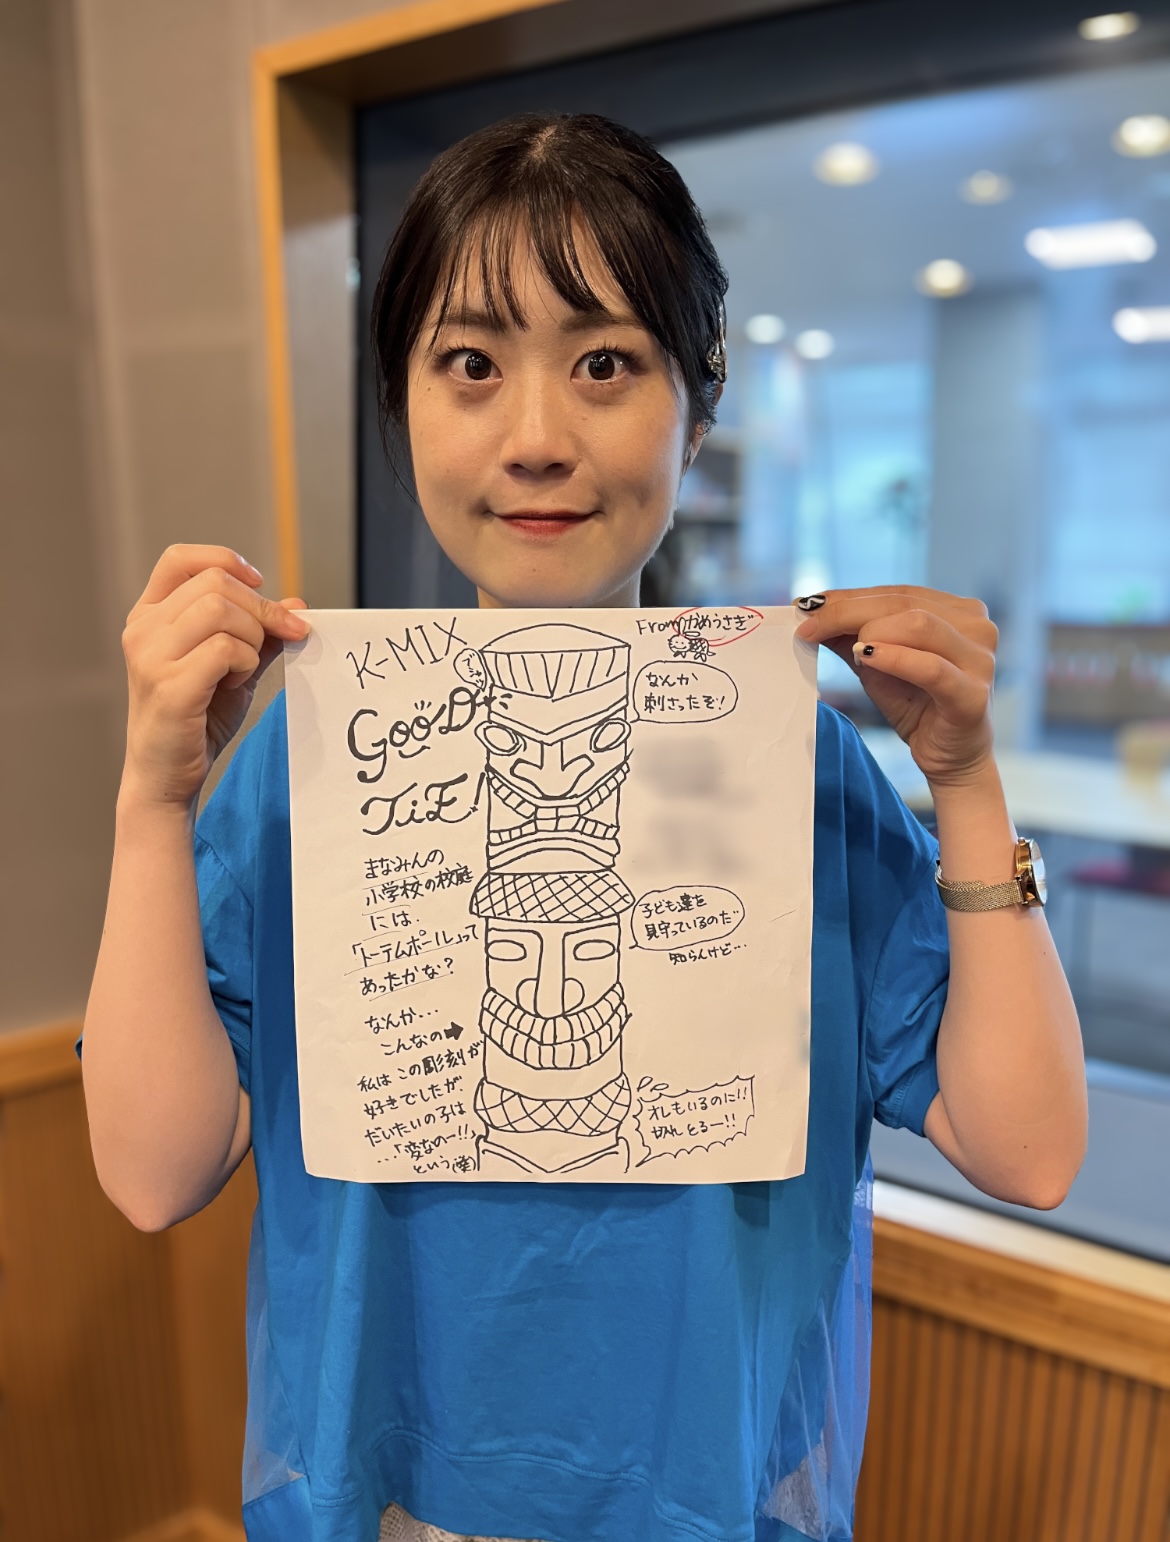 K-MIX
GOOD
TiE!
まなみんの
小学校の校庭
には、
「トーテムポール」って
あったかな？
なんか…
こんなの➡
私は この彫刻が
好きでしたが、
だいたいの子は
…「変なのー!!」
という(笑)
From かめうさぎ
なんか
刺さったぞ！
子ども達を
見守っているのだ
知らんけど…
オレもいるのに!!
切れとるー!!